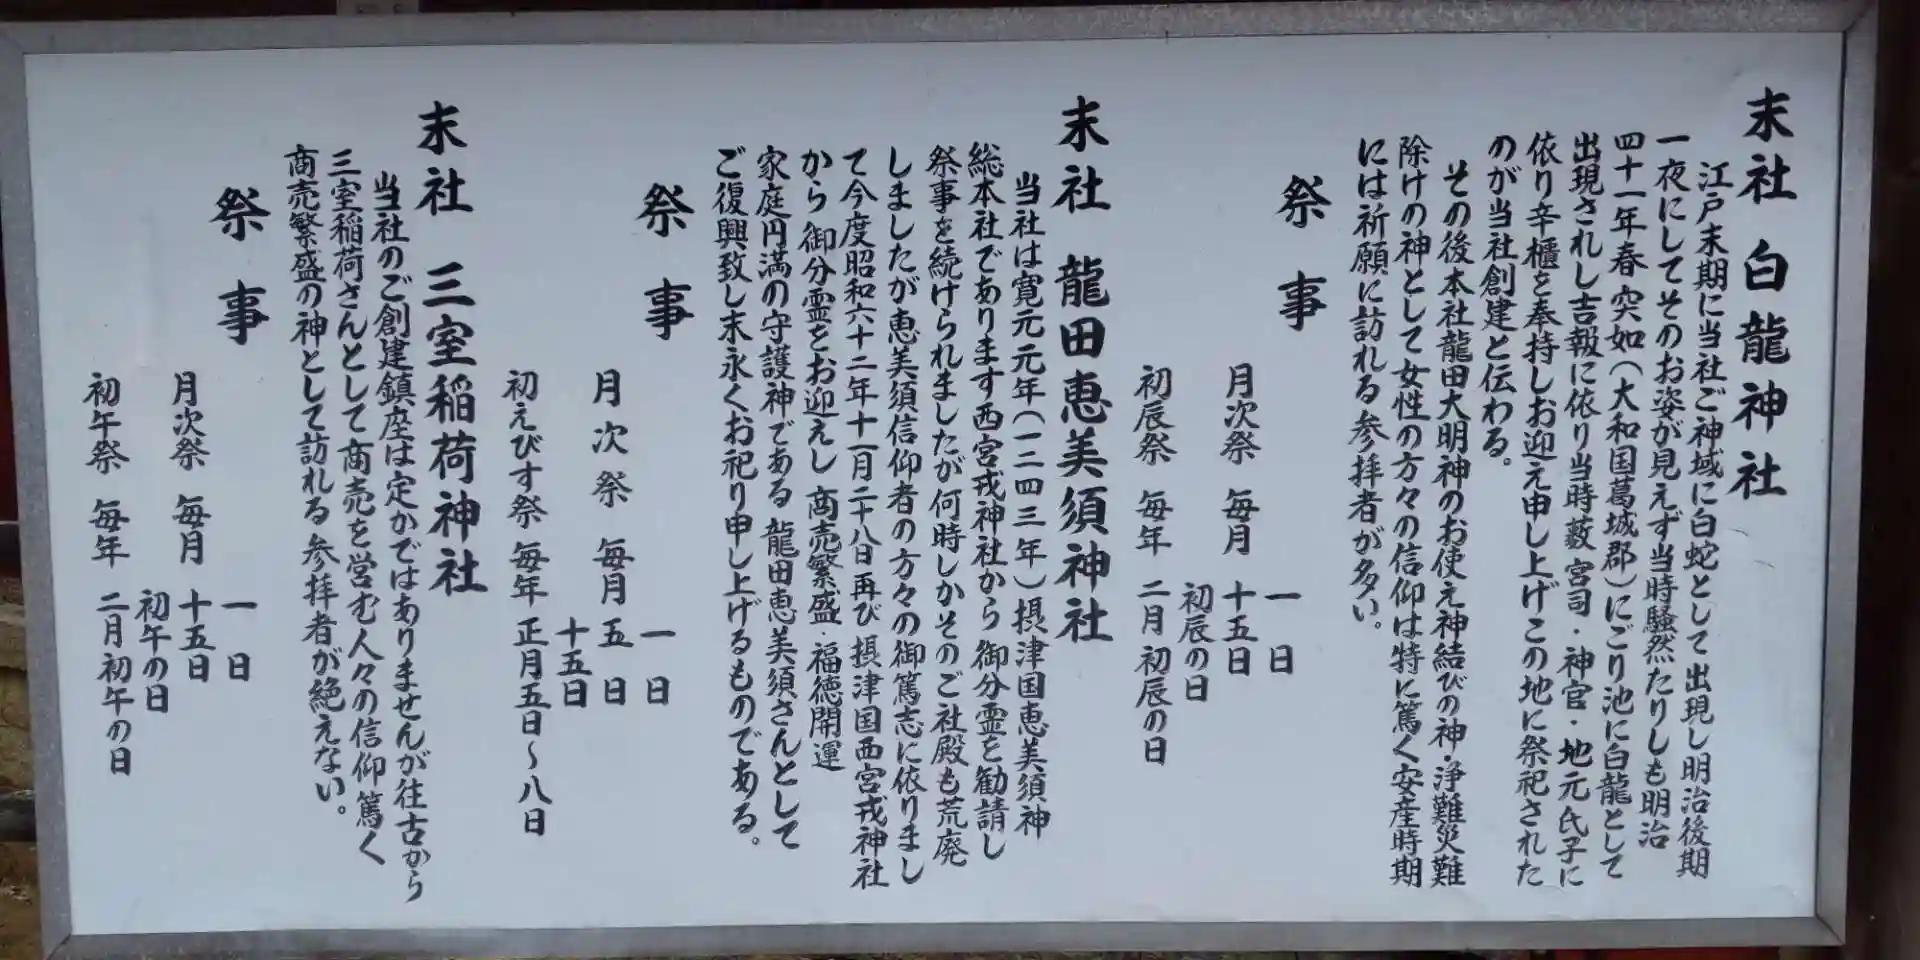 末社 白龍神社
江戸末期に当社ご神域に白蛇として出現し明治後期
一夜にしてそのお姿が見えず当時騒然たりしも明治
四十一年春 突如(大和国葛城郡)にごり池に白龍として
出現されし吉報に依り当時藪宮司・神官・地元氏子に
依り辛櫃を奉持しお迎え申し上げこの地に祭祀された
のが当社創建と伝わる。
その後本社龍田大明神のお使え神結びの神・浄難災難
除けの神として女性の方々の信仰は特に篤く安産時期
には祈願に訪れる参拝者が多い。
祭事
一日
月次祭 毎月 十五日
初辰の日
初辰祭 毎年 二月 初辰の日
末社 龍田恵美須神社
当社は寛元元年(一二四三年)摂津国恵美須神
総本社であります西宮戎神社から 御分霊を勧請し
祭事を続けられましたが何時しかそのご社殿も荒廃
しましたが恵美須信仰者の方々の御篤志に依りまし
て今度昭和六十二年十一月二十八日再び 摂津国西宮戎神社
から 御分霊をお迎えし 商売繁盛・福徳開運
家庭円満の守護神である 龍田恵美須さんとして
ご復興致し末永くお祀り申し上げるものである。
祭事
一日
月次祭 毎月 五日
十五日
初えびす祭 毎年 正月五日〜八日
末社 三室稲荷神社
当社のご創建鎮座は定かではありませんが往古から
三室稲荷さんとして商売を営む人々の信仰篤く
商売繁盛の神として訪れる参拝者が絶えない。
祭事
一日
月次祭 毎月 十五日
初午の日
初午祭 毎年 二月初午の日